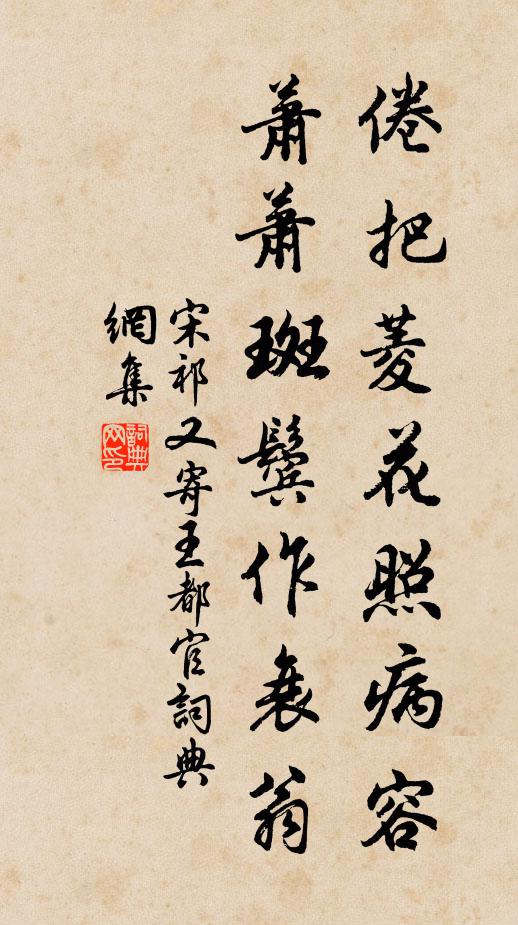 倦把菱花照病容
蕭蕭斑鬢作衰翁
宋祁又寄王都官詞典
網集
詞典
网印